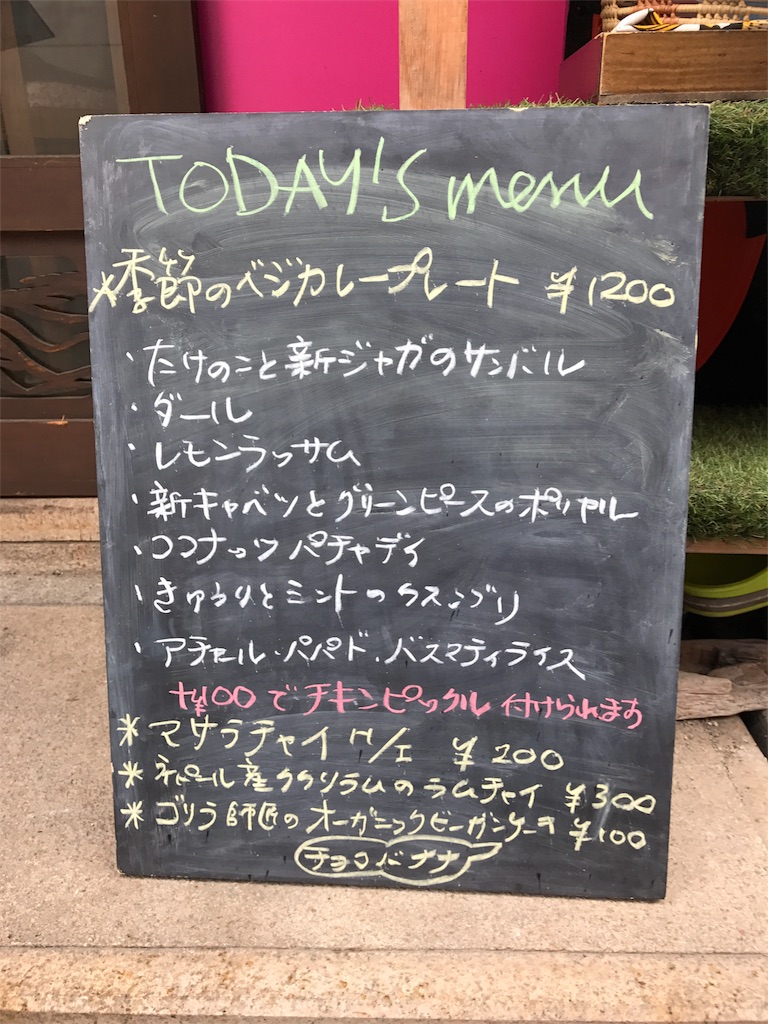 TODAY'S menu
*季節のベジカレープレート ¥1200
・たけのこと新ジャガのサンバル
・ダール
・レモンラッサム
・新キャベツとグリーンピースのポリヤル
・ココナッツパチャディ
・きゅうりとミントのクスンブリ
・アチャール・パパド・バスマティライス
+¥100でチキンピックル付けられます
*マサラチャイ H/I ¥200
*ネパール産ククリラムのラムチャイ ¥300
*ゴリラ師匠のオーガニックビーガンケーキ ¥100
チョコバナナ